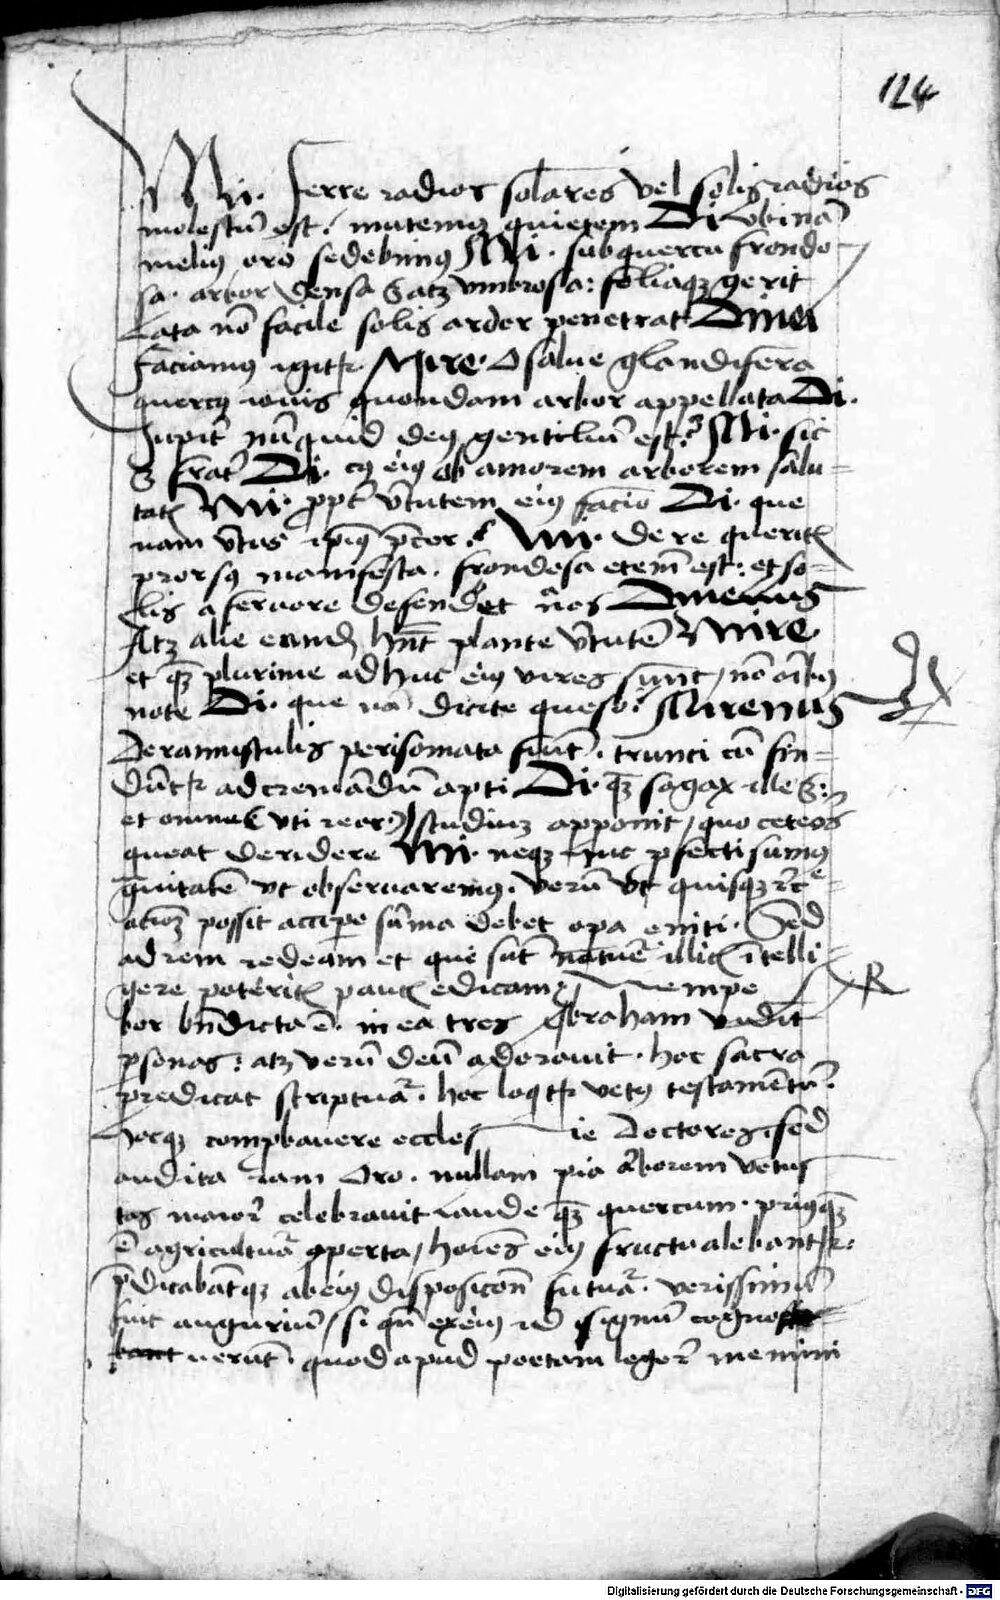 124
Mi. Ferre radios solares vel solis radios
molestũ est. mutemus quietem Di Vbi nã
melius oro sedebimus Mi. sub quercu frondo-
sa. arbor densa & atqʒ vmbrosa: foliaqʒ gerit
Lata nõ facile solis ardor penetrat
Faciamus igitr. Mire. O salue glandifera
quercus iouis quondam arbor appellata Di.
Jupitr nũquid deus gentiliũ est? Mi. sic
frater Di. cus eius ob amorem arborem salu=
tatis Mi. propt virtutem eius facio Di. que
nam virtus ipius precor? Mi. de re queritis
prorsus manifesta. frondosa etem est: et so=
lis a feruore defendet nos
Atqʒ alie eandem hnt plante virtutẽ Mire.
et quia plurime adhuc eius vires sunt, nõ oĩbus
note Di. que nã dicite queso? Mirenus
De ramusculis perisomata fiunt. trunci cũ fin=
duntr ad cremandũ apti Di. quã sagax ille est:
et omne vti reor studium apponit, quo ceteros
queat deridere Mi. neqʒ huc pfecti sumus
grauitatẽ vt obseruaremus. verũ vt quisqʒ rec=
ationẽ possit accipe sũma debet opa eniti. Sed
ad rem redeam et que sũt nature illicis ĩtelli
gere poteritis paucis edicam: Nempe
R
bor bñdicta ẽ. in ea tres Abraham vidit
psonas: atqʒ verũ deũ adorauit. hoc sacra
predicat scriptura. hoc loqtr vetus testamentũ.
Hocqʒ compbauere eccles ie Doctores, sed
audita iam Oro. nullam pia arborem vetus
tas maiori celebrauit laude quã quercum. priusquã
ẽ agricultura aperta, hoĩes eius fructu alebantr.
pdicabãtqʒ ab eius disposicõe futura. verissimũ
fuit auguriũ, si qñ ex eius id signũ cogno
uerũt. quod apud poetam legere memini
Digitalisierung gefördert durch die Deutsche Forschungsgemeinschaft - DFG